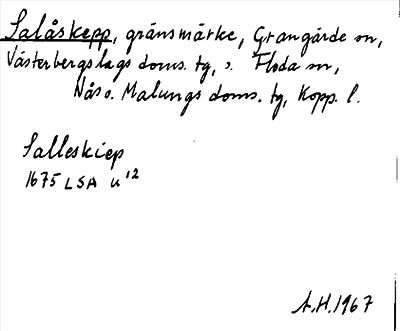 Salåskepp, gränsmärke, Grangärde sn,
Västerbergslags doms. tg, o. Floda sn,
Nås o. Malungs doms. tg, Kopp. l.
Salleskiep
1675 LSA U¹²
A.H. 1967